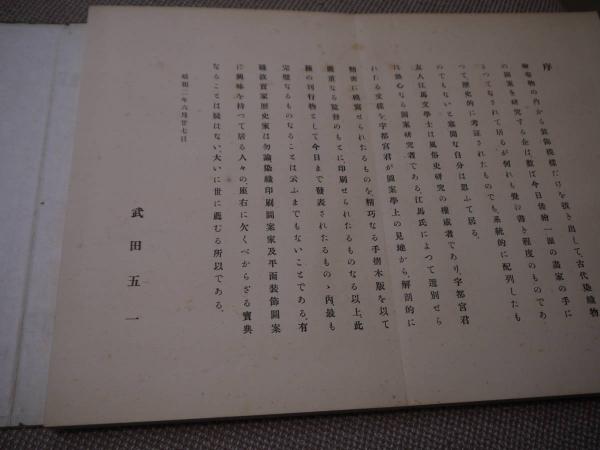 序
繪卷物の内から裝飾模樣だけを拔き出して、古代染織物
の圖案を研究する企は數ば今日後繪一派の畵家の手に
よつてなされて居るが何れも覺書き程度のものであ
つて歷史的に考証されたものでも、系統的に配列したも
のでもないと寡聞な自分は思ふて居る。
友人江馬文學士は風俗史研究の權威者であり、宇都宮君
は熱心なる圖案研究者である、江馬氏によつて選別せら
れたる文樣を、宇都宮君が圖案學上の見地から、解剖的に
精密に模寫せられたるものを、精巧なる手摺木版を以て
嚴重なる監督のもとに印刷せられたるものなる以上、此
種の刊行物として今日まで發表されたるものゝ内最も
完璧なるものなることは云ふまでもないことである、有
職故實家歷史家は勿論染織印刷圖案家及平面裝飾圖案
に興味を持つて居る人々の座右に欠くべからざる寶典
なることは疑はない、大いに世に薦むる所以である。
昭和二年六月廿七日
武田五一